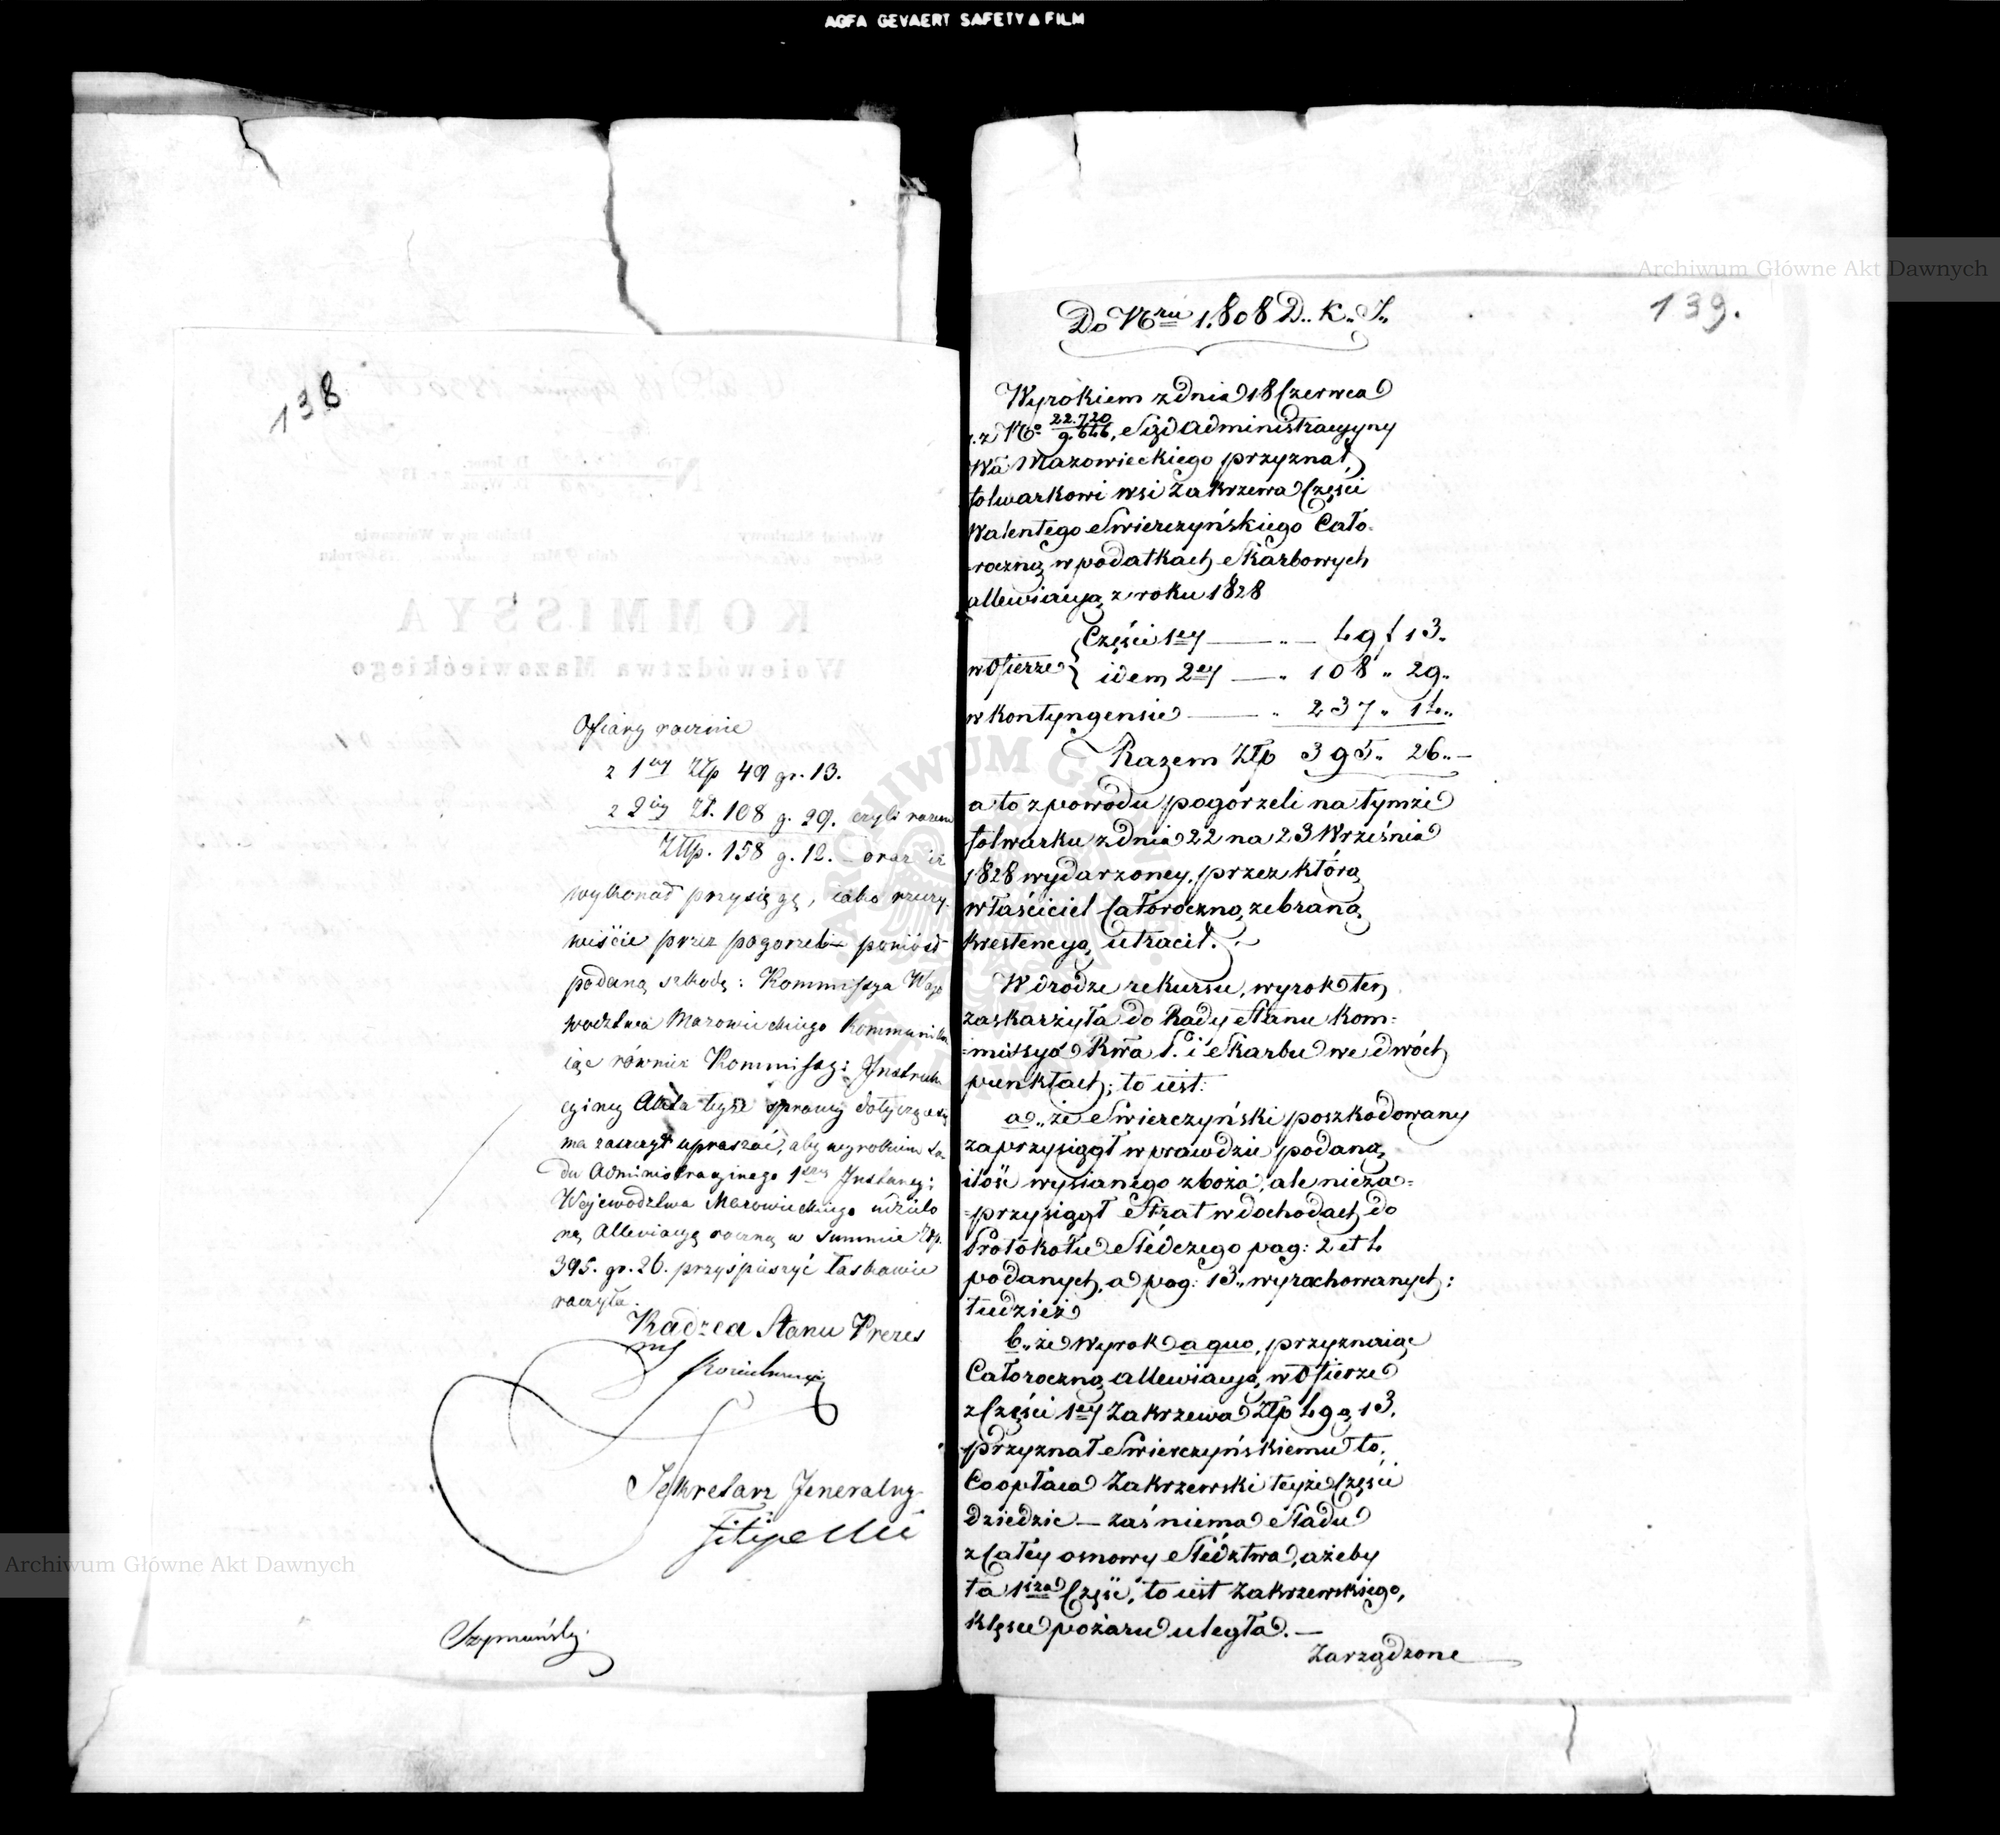 AGFA GEVAERT SAFETY FILM
Archiwum Główne Akt Dawnych
138
Ofiary rocznie
z 1ey Złp 49 gr. 13.
z 2iey Zł. 108 g. 29. czyli razem
Złłp. 158 g. 12. — oraz iż
wykonał przysięgę, iako rzeczy-
wiście przez pogorzel poniósł
podaną szkodę: Kommissya Woje
wodztwa Mazowieckiego kommuniku
iąc również Kommissyi Instruk
cyiney Akta teyże sprawy dotyczące się
ma zaszczyt upraszać, aby wyrokiem Są
du Administracyinego 1szey Instancyi
Województwa Mazowieckiego udzielo
ną Allewiacyą roczną w summie Złp.
395. gr. 26. przyśpieszyć łaskawie
raczyła.
Radzca Stanu Prezes
Sekretarz Jeneralny
Filipecki
Szymański
KOMMISSYA
Województwa Mazowieckiego
139.
Do Nru 1.808 D.. K.. J..
Wyrokiem z dnia 18 Czerwca
r. z No 22.720/9.646, Sąd Administracyyny
Wa Mazowieckiego przyznał,
folwarkowi wsi Zakrzewa Części
Walentego Swierczyńskiego Cało-
-roczną w podatkach Skarbowych
allewiacyą z roku 1828
w Ofierze { Części 1ey — „ — 49 f 13.
idem 2ey — „ 108 „ 29„
w kontyngensie — „ 237 „ 14„
Razem Złp 395„ 26„ —
a to z powodu pogorzeli na tymże
folwarku z dnia 22 na 23 Września
1828 wydarzoney, przez którą
właściciel Całoroczną zebraną
krestencyą utracił. —
W drodze rekursu, wyrok ten
zaskarżyła do Rady Stanu Kom-
-missya Rwa P. i Skarbu we dwóch
punktach; to iest:
a„ że Swierczyński poszkodowany
zaprzysiągł wprawdzie podaną
ilość wysianego zboża, ale nieza-
-przysiągł Strat w dochodach do
Protokołu Śledczego pag: 2 et 4
podanych, a pag: 13„ wyrachowanych;
tudzież
b„ że Wyrok a quo, przyznaiąc
Całoroczną allewiacyą w Ofierze
z Części 1ey Zakrzewa Złp 49 g 13.
przyznał Swierczyńskiemu to,
Co opłaca Zakrzewski teyże Części
dziedzic — zaś niema Śladu
z Całey osnowy Śledztwa, ażeby
ta 1sza Część, to iest Zakrzewskiego,
klęsce pożaru uległa. —
Zarządzone
Archiwum Główne Akt Dawnych